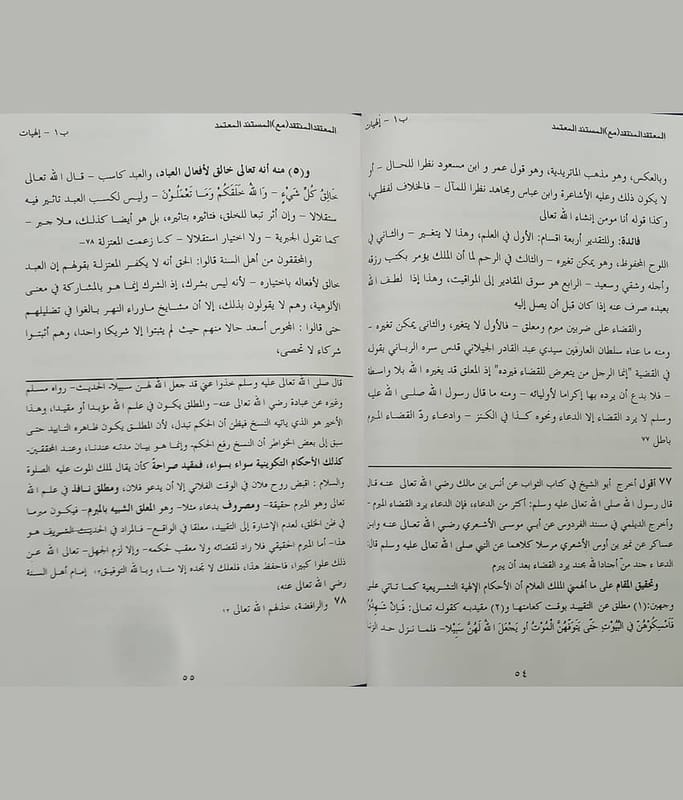 المعتقد المنتقد (مع) المستند المعتمد
ب١ - إلهيات
وبالعكس، وهو مذهب الماتريدية، وهو قول عمر و ابن مسعود نظرا للحال – أو
لا يكون ذلك وعليه الأشاعرة وابن عباس ومجاهد نظرا للمآل – فالخلاف لفظي،
وكذا قوله أنا مومن إنشاء الله تعالى
فائدة: وللتقدير أربعة اقسام: الأول في العلم، وهذا لا يتغير – والثاني في
اللوح المحفوظ، وهو يمكن تغيره – والثالث في الرحم لما أن الملك يؤمر بكتب رزقه
وأجله وشقي وسعيد – الرابع هو سوق المقادير إلى المواقيت، وهذا إذا لطف الله
بعبده صرف عنه إذا كان قبل أن يصل إليه
والقضاء على ضربين مبرم ومعلق – فالأول لا يتغير، والثانى يمكن تغيره –
ومنه ما عناه سلطان العارفين سيدي عبد القادر الجيلاني قدس سره الرباني بقوله
في القضية "إنما الرجل من يتعرض للقضاء فيرده" إذ المعلق قد يغيره الله بلا واسطة
– فلا بدع أن يرده بها إكراما لأوليائه – ومنه ما قال رسول الله صلى الله عليه
وسلم لا يرد القضاء إلا الدعاء ونحوه كذا في الكنز – وادعاء ردّ القضاء المبرم
باطل ٧٧
٧٧ أقول أخرج أبو الشيخ في كتاب الثواب عن أنس بن مالك رضي الله تعالى عنه قال
قال رسول الله صلى الله تعالى عليه وسلم: أكثر من الدعاء، فإن الدعاء يرد القضاء المبرم –
وأخرج الديلمي في مسند الفردوس عن أبي موسى الأشعري رضي الله تعالى عنه وابن
عساكر عن نمير بن أوس الأشعري مرسلا كلاهما عن النبي صلى الله تعالى عليه وسلم قال:
الدعاء جند من أجنادا الله مجند يرد القضاء بعد أن يبرم
وتحقيق المقام على ما ألهمني الملك العلام أن الأحكام الإلهية التشريعية كما تاتي على
وجهين:(١) مطلق عن التقييد بوقت كعامتها و(٢) مقيدبه كقوله تعالى: فَإِنْ شَهِدُوْا
فَأَمْسِكُوْهُنَّ فِي الْبُيُوْتِ حَتّٰى يَتَوَفّٰهُنَّ الْمَوْتُ أَو يَجْعَلَ اللهُ لَهُنَّ سَبِيْلًا- فلما نزل حد الزنا
٥٤
المعتقد المنتقد (مع) المستند المعتمد
ب١ - إلهيات
و(٥) منه أنه تعالى خالق لأفعال العباد، والعبد كاسب – قال الله تعالى
خَالِقُ كُلِّ شَيْءٍ – وَاللهُ خَلَقَكُمْ وَمَا تَعْمَلُوْنَ – وليس لكسب العبد تاثير فيه
ستقلالا – وإن أثر تبعا للخلق، فتاثيره بتاثيره، بل هو أيضا كذلك، فلا جبر –
كما تقول الجبرية – ولا اختيار استقلالا – كما زعمت المعتزلة ٧٨-
والمحققون من أهل السنة قالوا: الحق أنه لا يكفر المعتزلة بقولهم إن العبد
خالق لأفعاله باختياره – لأنه ليس بشرك، إذ الشرك إنما هو بالمشاركة في معنى
الألوهية، وهم لا يقولون بذلك، إلا أن مشايخ ماوراء النهر بالغوا في تضليلهم
حتى قالوا : المجوس أسعد حالا منهم حيث لم يثبتوا إلا شريكا واحدا، وهم أثبتوا
شركاء لا تحصى،
قال صلى الله تعالى عليه وسلم خذوا عني قد جعل الله لهن سبيلا الحديث– رواه مسلم
وغيره عن عبادة رضي الله تعالى عنه– والمطلق يكون في علم الله مؤبدا أو مقيدا، وهذا
الأخير هو الذي ياتيه النسخ فيظن أن الحكم تبدل، لأن المطلق يكون ظاهره التابيد حتى
سبق إلى بعض الخواطر أن النسخ رفع الحكم- وإنما هو بيان مدته عندنا، وعند المحققين–
كذلك الأحكام التكوينية سواء بسواء، فمقيد صراحة كأن يقال لملك الموت عليه الصلوة
والسلام : اقبض روح فلان في الوقت الفلاني إلا أن يدعو فلان، ومطلق نافذ في علم الله
تعالى وهو المبرم حقيقة– ومصروف بدعاء مثلا– وهو المعلق الشبيه بالمبرم – فيكون مبرما
في ظن الخلق، لعدم الإشارة إلى التقييد، معلقا في الواقع– فالمراد في الحديث الشريف هو
هذا– أما المبرم الحقيقي فلا راد لقضائه ولا معقب لحكمه– وإلا لزم الجهل– تعالى الله عن
ذلك علوا كبيرا، فاحفظ هذا، فلعلك لا تجده إلا منا، وبالله التوفيق١٢ إمام أهل السنة
رضي الله تعالى عنه،
٧٨ والرافضة، خذلهم الله تعالى ١٢
٥٥